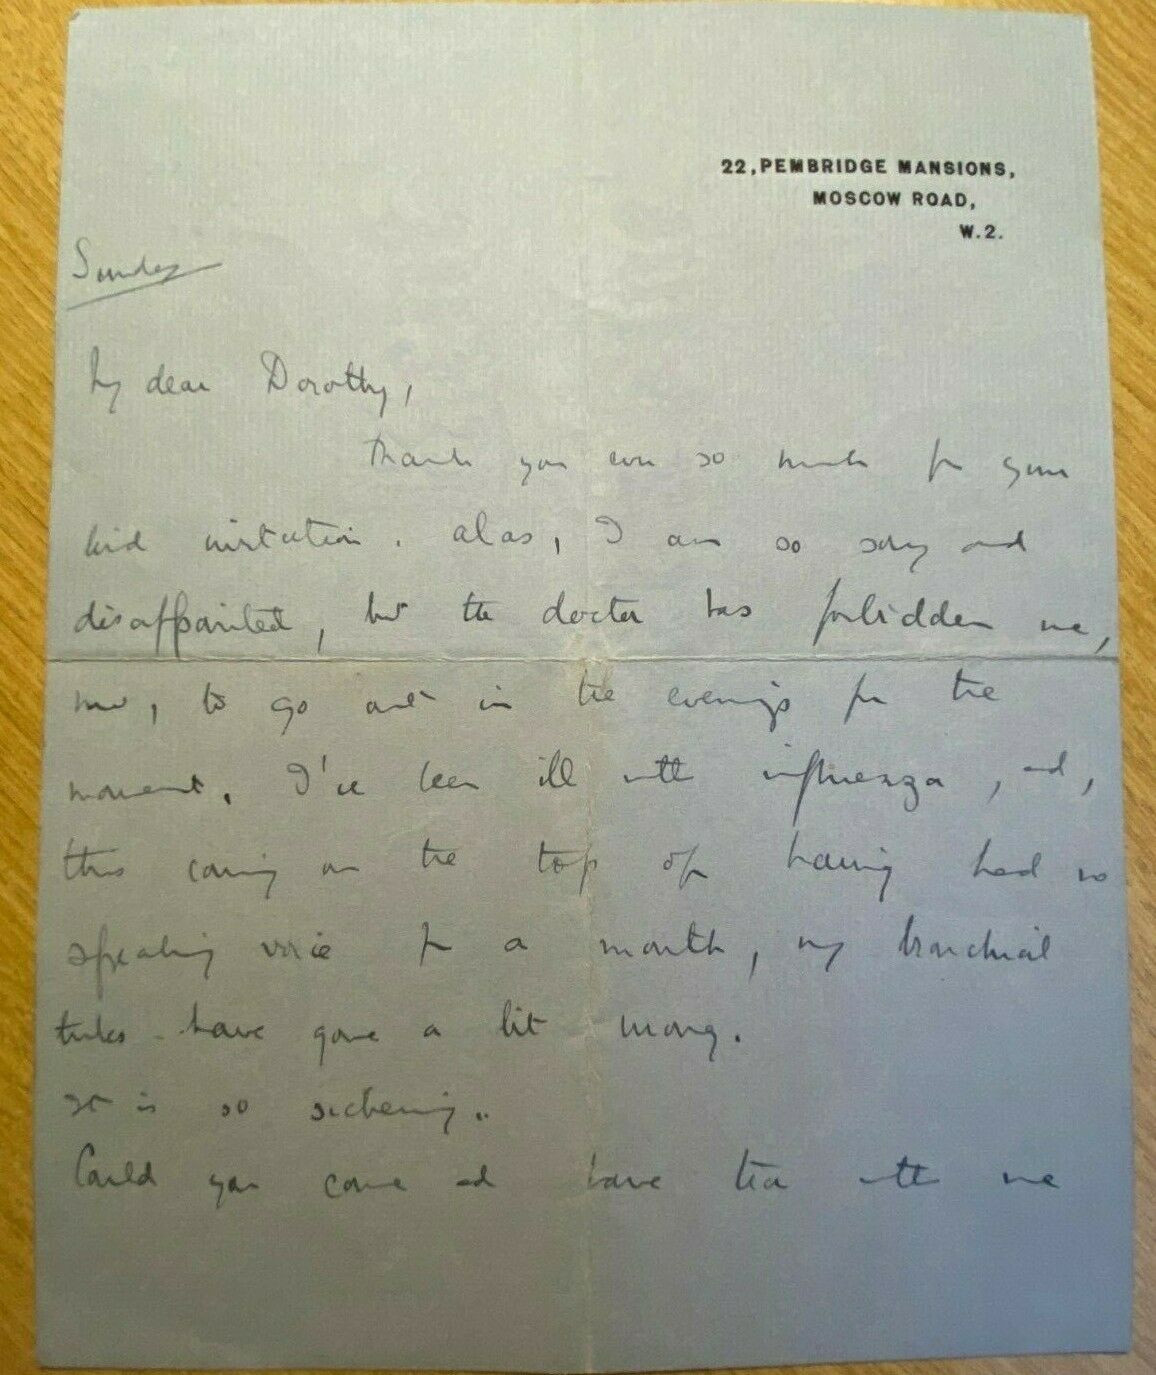 22, PEMBRIDGE MANSIONS,
MOSCOW ROAD,
W.2.
Sunday
My dear Dorothy,
Thank you ever so much for your
kind invitation. Alas, I am so sorry and
disappointed, but the doctor has forbidden me,
to go out in the evenings for the
moment. I've been ill with influenza, and,
this coming on the top of having had no
speaking voice for a month, my bronchial
tubes have gone a bit wrong.
It is so sickening.
Could you come and have tea with me